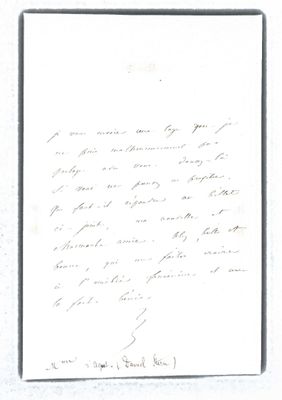 je vous envoie une loge que je
ne puis malheureusement pas
partager avec vous. donnez-la
si vous ne pouvez en profiter.
que faut-il répondre au billet
ci-joint. ma nouvelle et
charmante amie. et
bonne, qui me faites croire
à l'amitié féminine et
la
Mme d'Agoult (Daniel Stern)